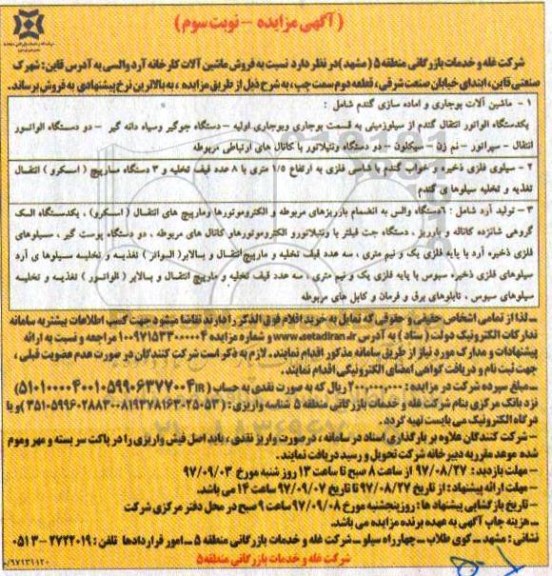 (آگهی مزایده - نوبت سوم)
شرکت غله و خدمات بازرگانی منطقه ۵ (مشهد) در نظر دارد نسبت به فروش ماشین آلات کارخانه آرد والسی به آدرس قاین: شهرک
صنعتی قاین، ابتدای خیابان صنعت شرقی، قطعه دوم سمت چپ، به شرح ذیل از طریق مزایده، به بالاترین نرخ پیشنهادی به فروش برساند.
۱- ماشین آلات بوجاری و آماده سازی گندم شامل:
یکدستگاه الواتور انتقال گندم از سیلو زمینی به قسمت بوجاری و بوجاری اولیه - دستگاه جوگیر و سیاه دانه گیر - دو دستگاه الواتور
انتقال - سپراتور - نم زن - سیکلون - دو دستگاه ونتیلاتور با کانال های ارتباطی مربوطه
۲- سیلوی فلزی ذخیره و خواب گندم با شاسی فلزی به ارتفاع ۱/۵ متری با ۸ عدد قیف تخلیه و ۳ دستگاه مارپیچ (اسکرو) انتقال
تغذیه و تخلیه سیلوهای گندم
۳- تولید آرد شامل: ۶ دستگاه والس به انضمام بارریزهای مربوطه و الکتروموتورها و مارپیچ های انتقال (اسکرو)، یکدستگاه الک
گروهی شانزده کاناله و بارریز، دستگاه جت فیلتر با ونتیلاتور و الکتروموتورهای کانال های مربوطه، دو دستگاه پوست گیر، سیلوهای
فلزی ذخیره آرد با پایه فلزی یک و نیم متری، سه عدد قیف تخلیه و مارپیچ انتقال و بالابر (الواتور) تغذیه و تخلیه سیلوها ی آرد
سیلوهای فلزی ذخیره سبوس با پایه فلزی یک و نیم متری، سه عدد قیف تخلیه و مارپیچ انتقال و بالابر (الواتور) تغذیه و تخلیه
سیلوهای سبوس، تابلوهای برق و فرمان و کابل های مربوطه
- لذا از تمامی اشخاص حقیقی و حقوقی که تمایل به خرید اقلام فوق الذکر را دارند تقاضا میشود جهت کسب اطلاعات بیشتر به سامانه
تدارکات الکترونیک دولت (ستاد) به آدرس www.setadiran.ir و شماره مزایده ۱۰۰۹۷۱۵۳۳۰۰۰۰۰۴ مراجعه و نسبت به ارائه
پیشنهادات و مدارک مورد نیاز از طریق سامانه مذکور اقدام نمایند. لازم به ذکر است شرکت کنندگان در صورت عدم عضویت قبلی،
جهت ثبت نام و دریافت گواهی امضای الکترونیکی اقدام نمایند.
- مبلغ سپرده شرکت در مزایده: ۲۰۰,۰۰۰,۰۰۰ ریال که به صورت نقدی به حساب
نزد بانک مرکزی بنام شرکت غله و خدمات بازرگانی منطقه ۵ شناسه واریزی: و یا
درگاه الکترونیک می بایست تهیه گردد.
- شرکت کنندگان علاوه بر بارگذاری اسناد در سامانه، در صورت واریز نقدی، باید اصل فیش واریزی را در پاکت سر بسته و مهر و موم
شده موعد مقرر به دبیرخانه شرکت تحویل و رسید دریافت نمایند.
- مهلت بازدید: ۹۷/۰۸/۲۷ از ساعت ۸ صبح تا ساعت ۱۳ روز شنبه مورخ ۹۷/۰۹/۰۳
- مهلت ارائه پیشنهاد: از تاریخ ۹۷/۰۸/۲۷ تا تاریخ ۹۷/۰۹/۰۷ ساعت ۱۴ می باشد.
- تاریخ بازگشایی پیشنهاد ها: روز پنجشنبه مورخ ۹۷/۰۹/۰۸ ساعت ۹ صبح در محل دفتر مرکزی شرکت
- هزینه چاپ آگهی به عهده برنده مزایده می باشد.
نشانی: مشهد - کوی طلاب - چهارراه سیلو - شرکت غله و خدمات بازرگانی منطقه ۵ - امور قراردادها تلفن: ۲۷۲۲۰۱۹ - ۰۵۱۳
شرکت غله و خدمات بازرگانی منطقه ۵